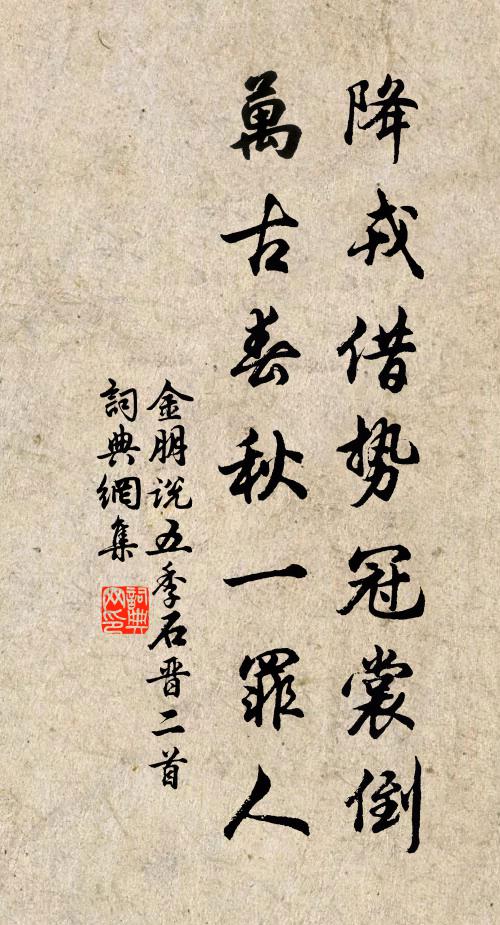 降戎借势冠裳倒
萬古春秋一罪人
金朋说五季石晋二首
詞典網集
詞典網印